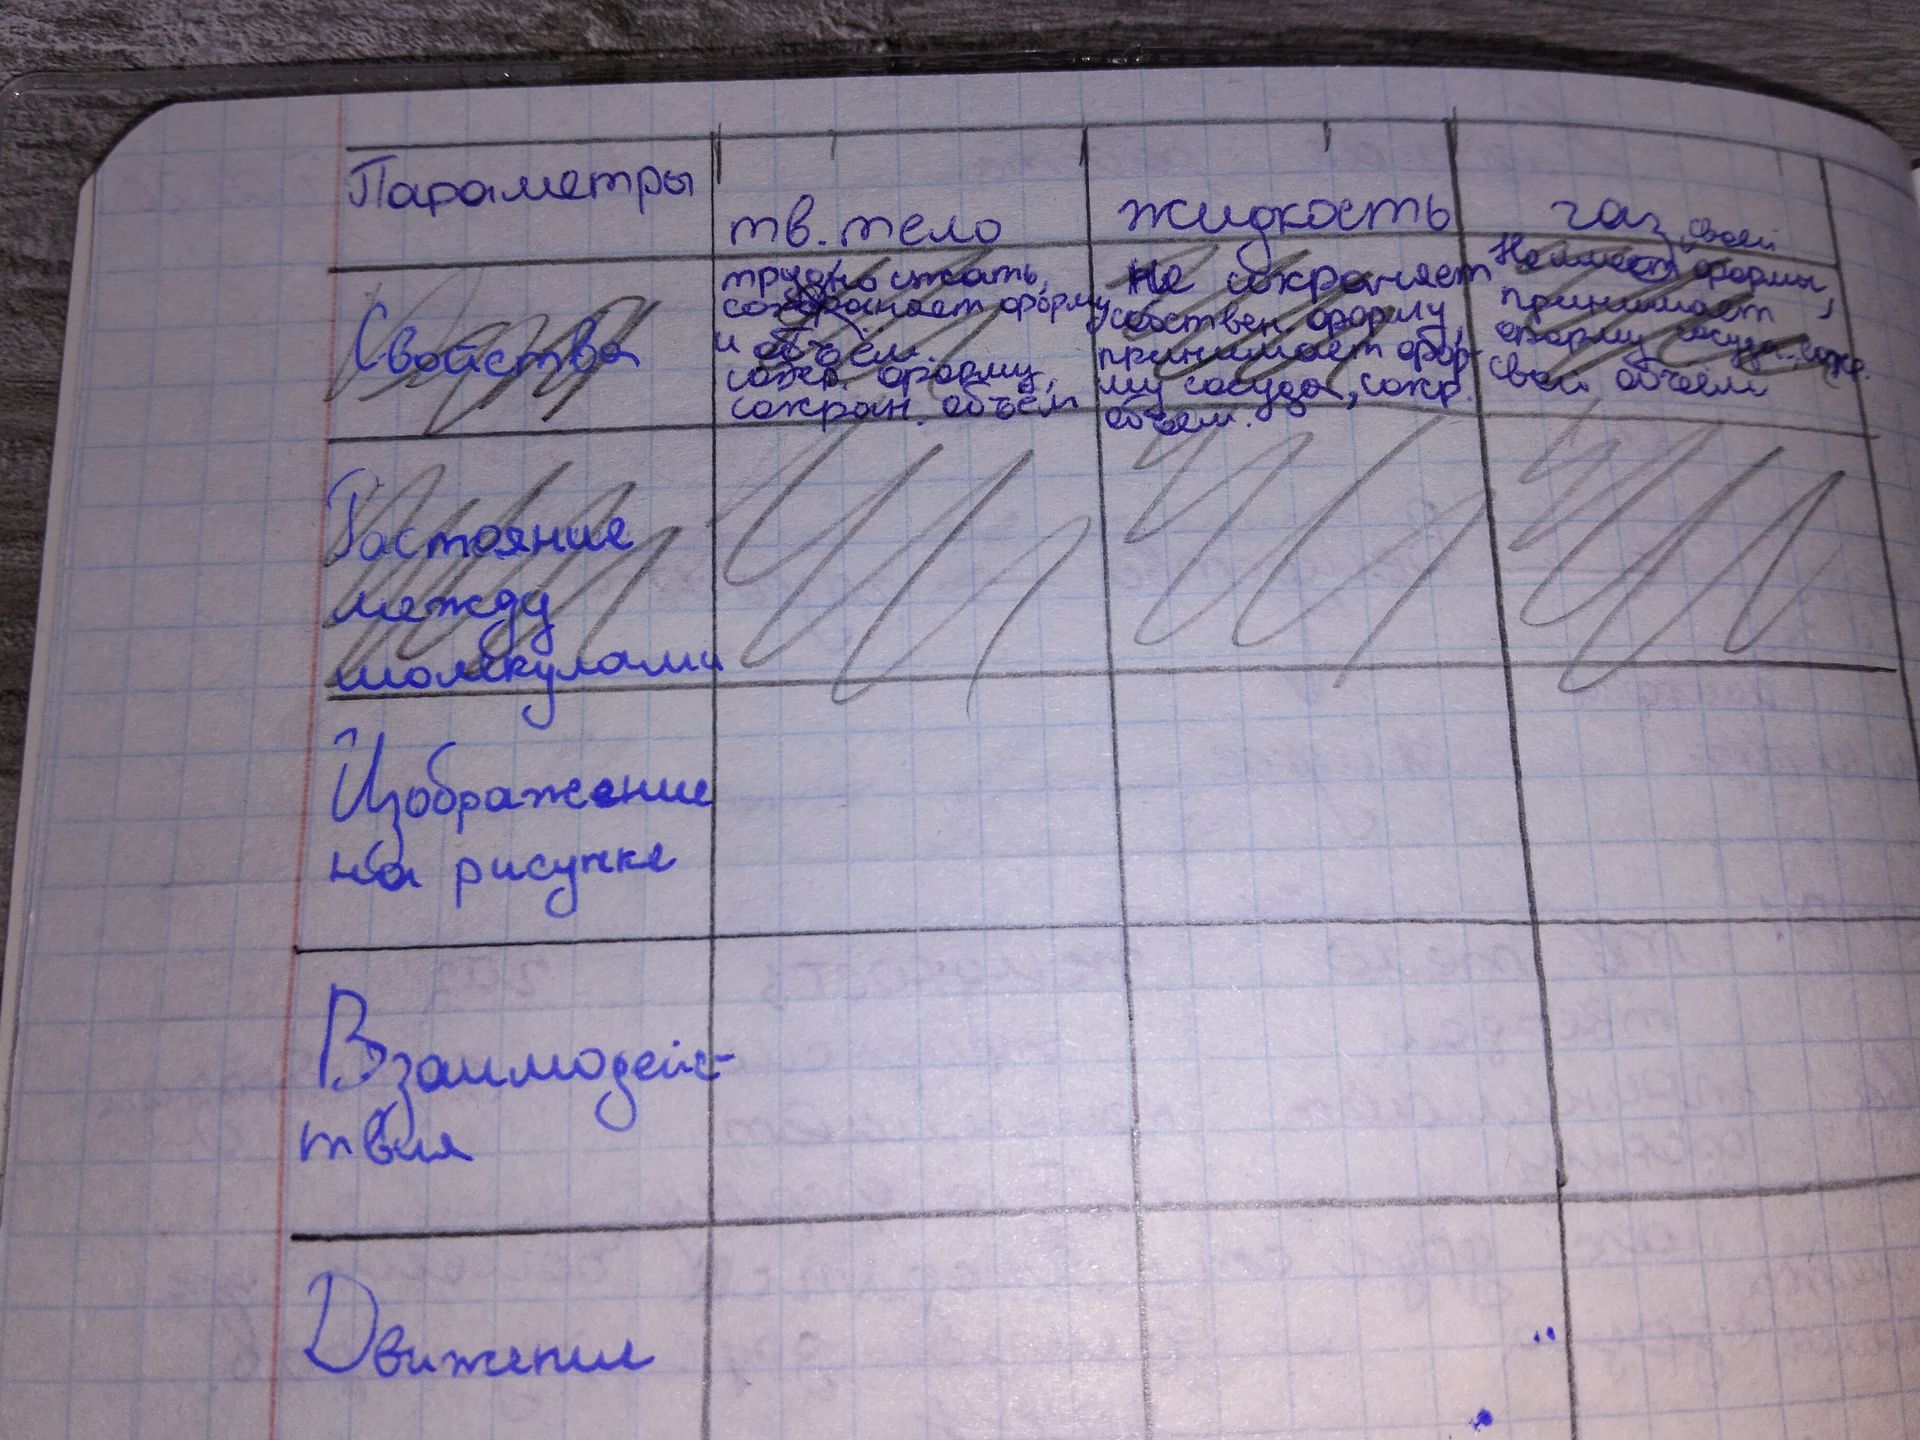 Параметры
тв. тело
жидкость
газ
Свойства
трудно сжать,
сохраняет форму
и объём.
сохр. форму,
сохран. объём
Не сохраняет
собствен. форму,
принимает фор-
му сосуда, сохр.
объем.
своей
Не имеет формы,
принимает
форму сосуда. сохр.
свой объём
Растояние
между
молекулами
Изображение
на рисунке
Взаимодейс-
твия
Движение